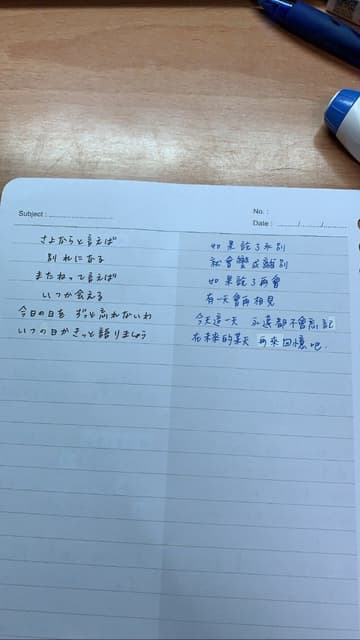 Subject :
No. :
Date : / /
さよならと言えば
別れになる
またねって言えば
いつか会える
今日の日を ずっと忘れないわ
いつの日かきっと語りましょう
如果說了永別
就會變成離別
如果說了再會
有一天會再相見
今天這一天 永遠都不會忘記
在未來的某天 再來回憶吧.